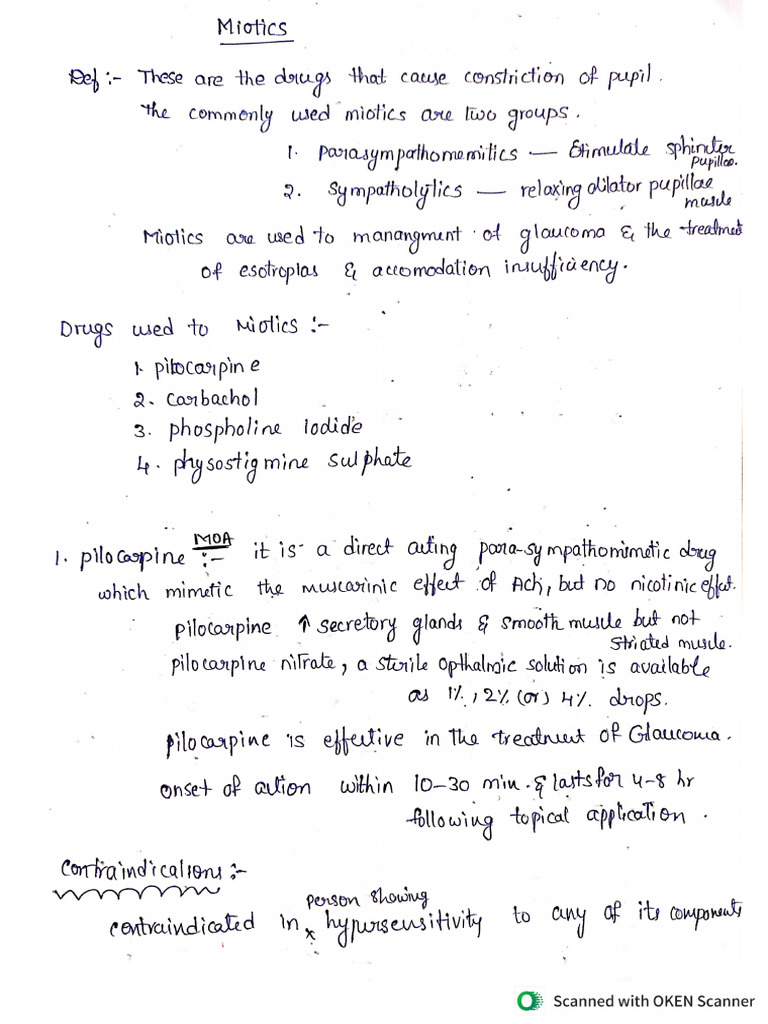 Miotics
Def :- These are the drugs that cause constriction of pupil.
The commonly used miotics are two groups.
1. parasympathomemitics — Stimulate sphincter pupillae.
2. Sympatholytics — relaxing dilator pupillae muscle
Miotics are used to manangment of glaucoma & the treatment
of esotropias & accomodation insufficiency.
Drugs used to Miotics :-
1. pilocarpine
2. Carbachol
3. phospholine Iodide
4. physostigmine sulphate
1. pilocarpine MOA :- it is a direct acting para-sympathomimetic drug
which mimetic the muscarinic effect of Ach, but no nicotinic effect.
pilocarpine ↑ secretory glands & smooth muscle but not striated muscle.
pilocarpine nitrate, a sterile opthalmic solution is available
as 1%, 2% (or) 4% drops.
pilocarpine is effective in the treatment of Glaucoma.
onset of action within 10-30 min. & lasts for 4-8 hr
following topical application.
Contraindications :-
contraindicated in person showing hypersensitivity to any of its components
Scanned with OKEN Scanner